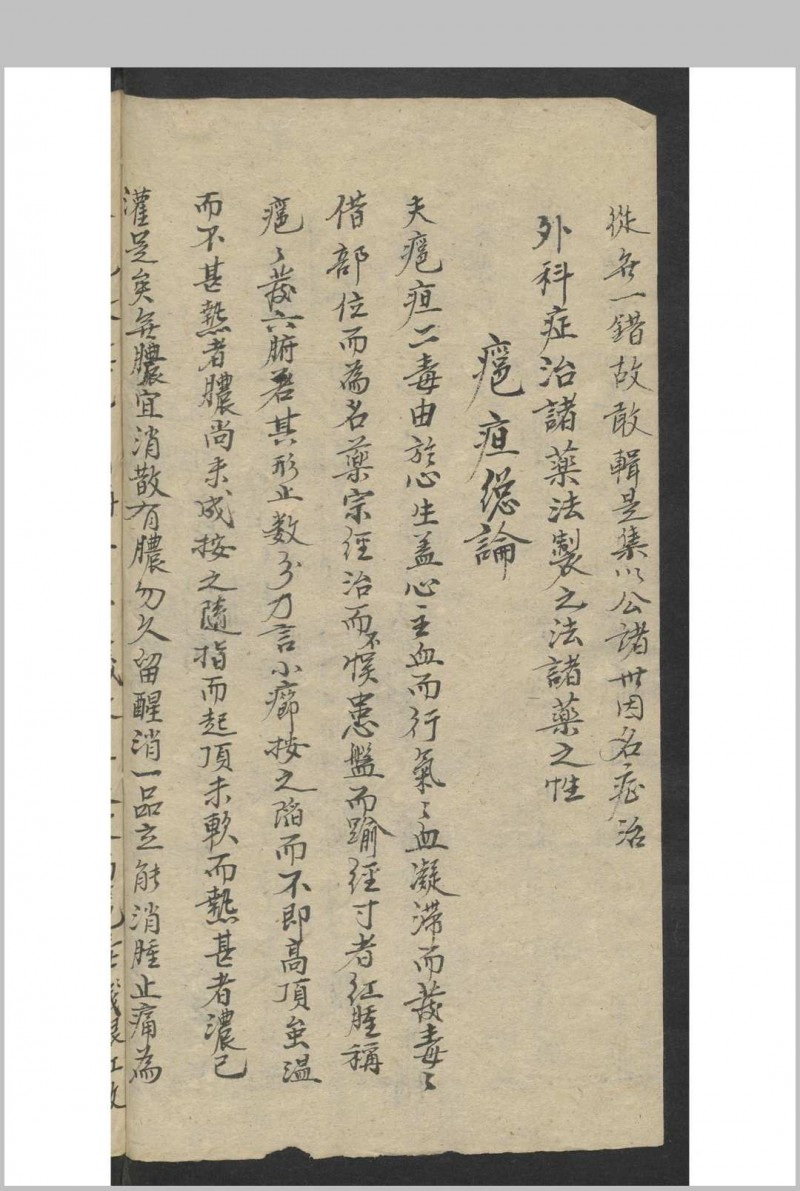 從無一錯故敢輯是集以公諸世因名症治
外科症治諸藥法製之法諸藥之性
癰疽總論
夫癰疽二毒由於心生蓋心主血而行氣〻血凝滯而發毒〻
借部位而為名藥宗經治而不悞患盤而踰徑寸者紅腫稱
癰〻發六腑若其形止數分乃言小癤按之陷而不即高頂虽温
而不甚熱者膿尚未成按之隨指而起頂未軟而熱甚者濃已
灌足矣無膿宜消散有膿勿久留醒消一品立能消腫止痛為